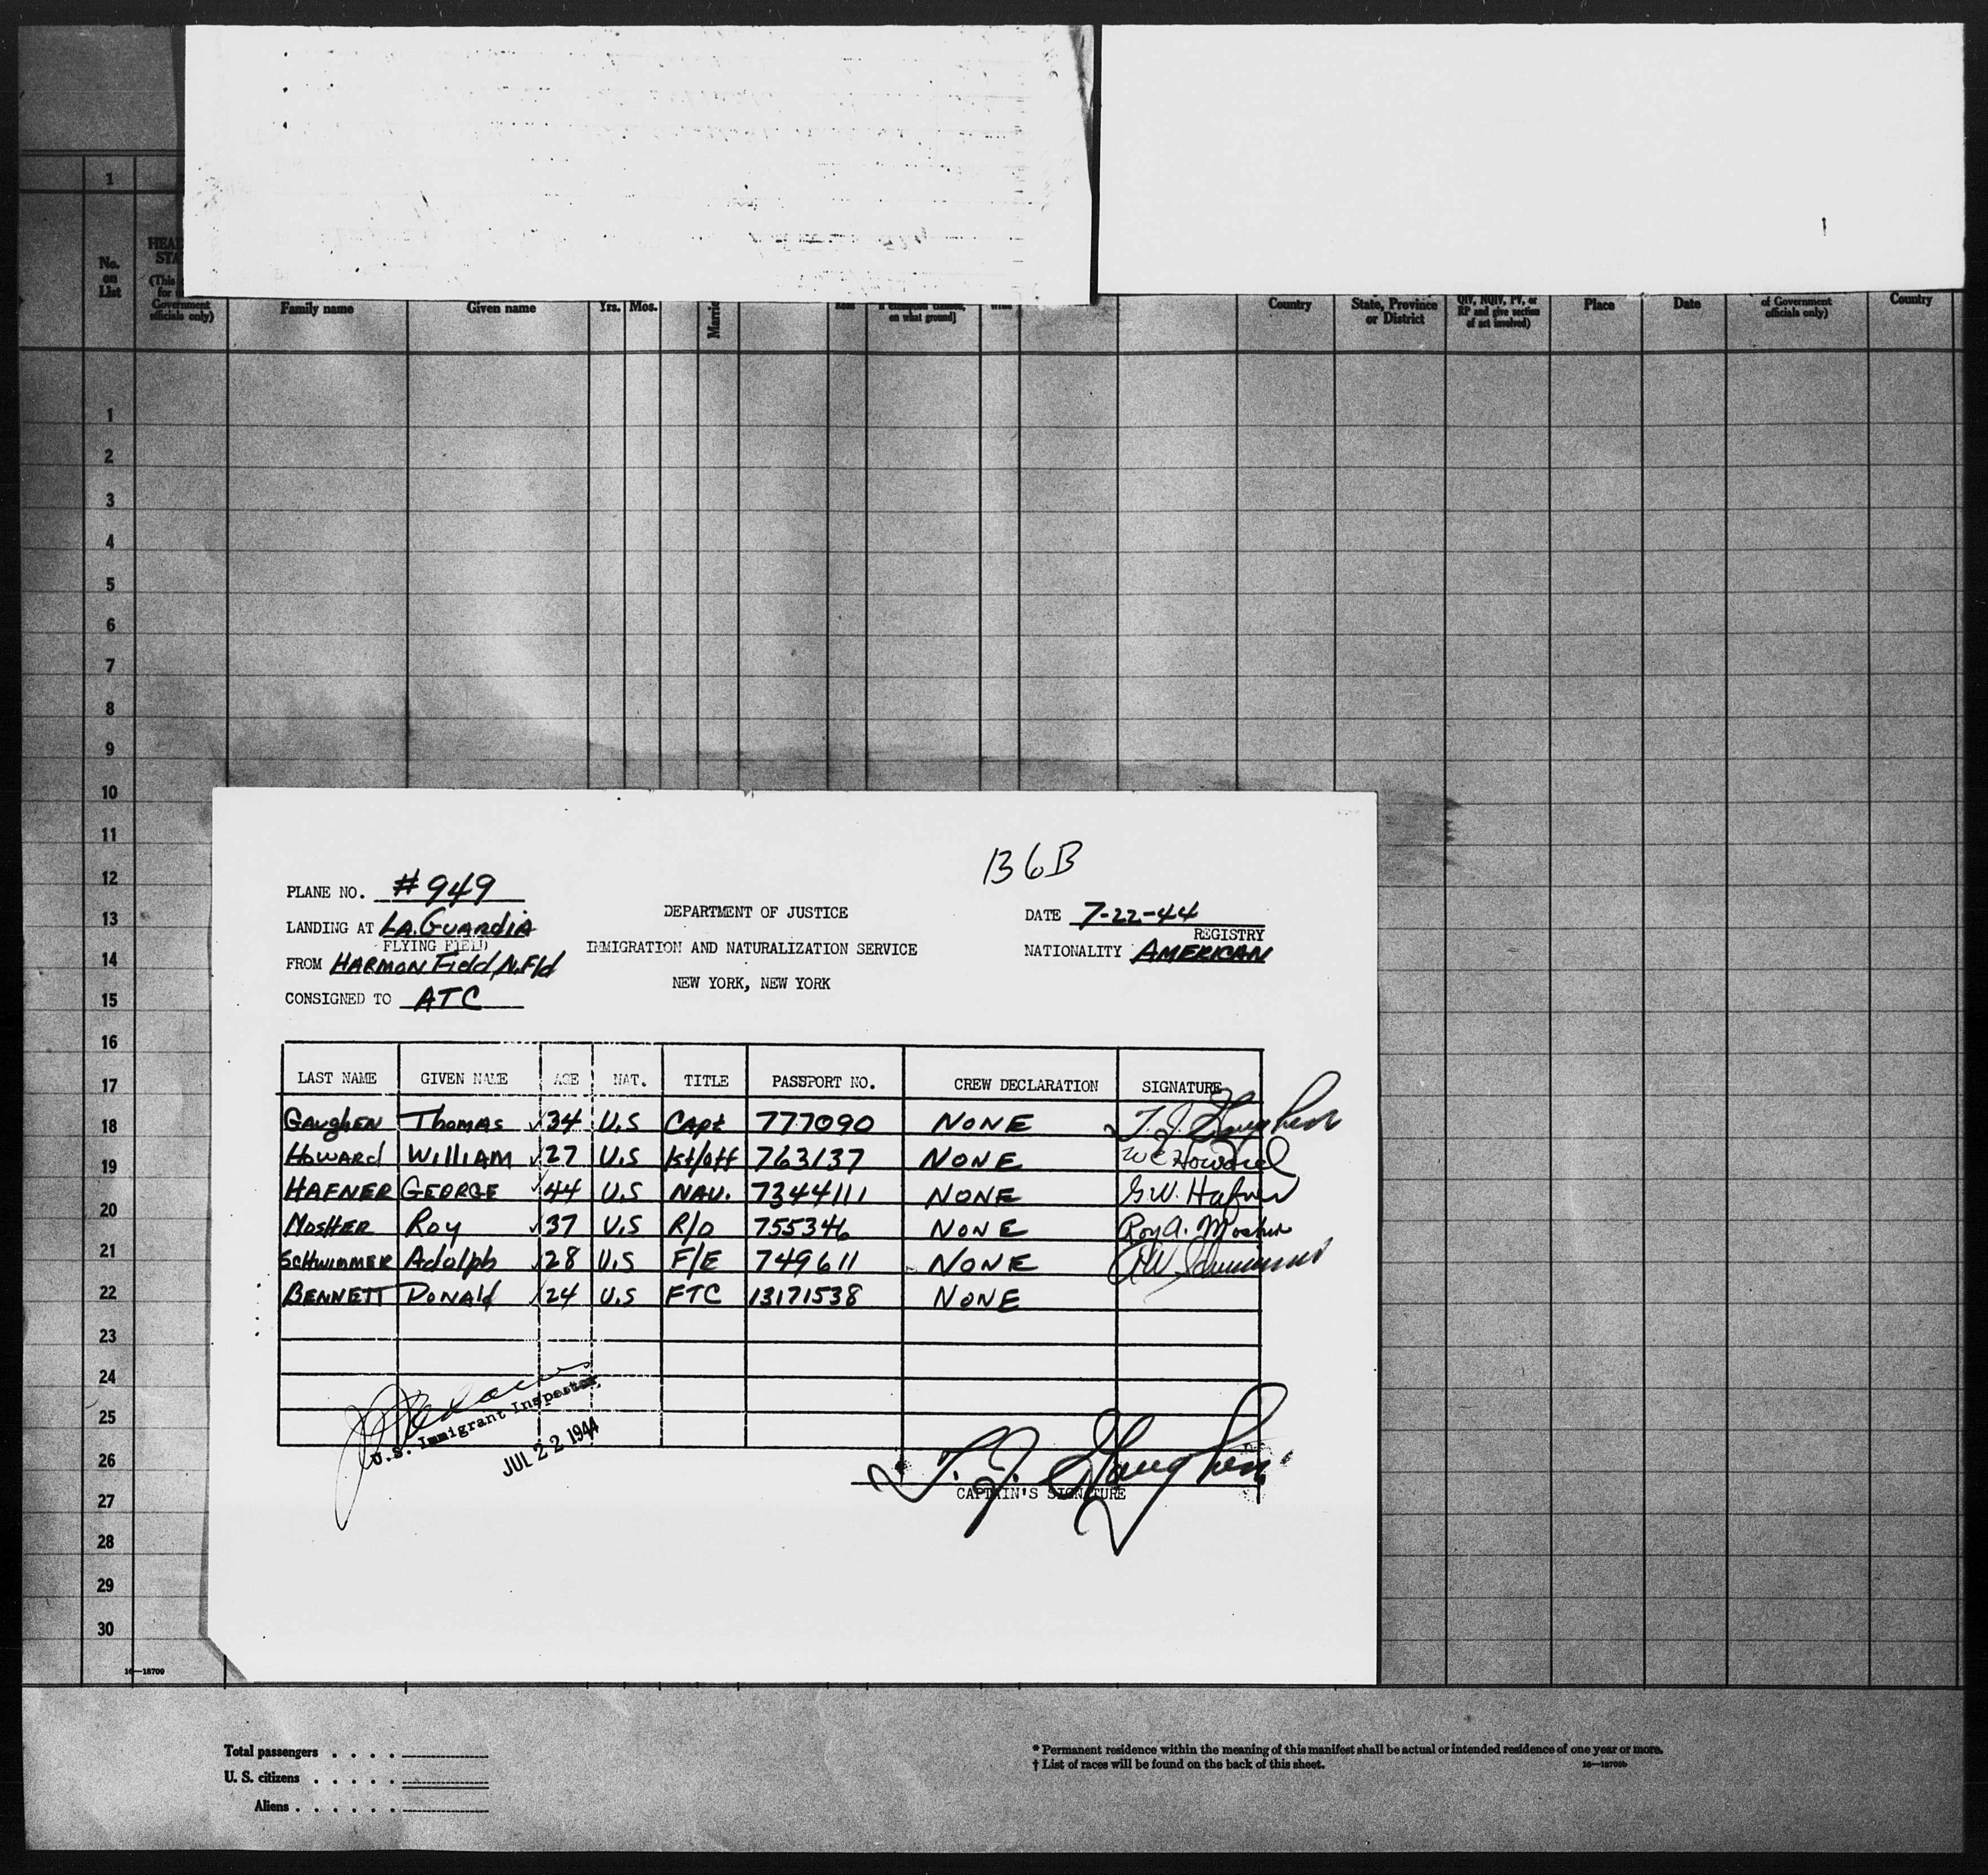 1
No. on List
HEAD
STA
(This
for
Government
officials only)
Family name
Given name
Yrs.
Mos.
Marrie
on what ground]
Country
State, Province
or District
QIV, NQIV, PV, or
RP and give section
of act involved)
Place
Date
of Government
officials only)
Country
1
2
3
4
5
6
7
8
9
10
11
12
13
14
15
16
17
18
19
20
21
22
23
24
25
26
27
28
29
30
16—18709
136B
PLANE NO. #949
LANDING AT LA.GUARDIA
FLYING FIELD
FROM HARMON Field, N.Fld
CONSIGNED TO ATC
DEPARTMENT OF JUSTICE
IMMIGRATION AND NATURALIZATION SERVICE
NEW YORK, NEW YORK
DATE 7-22-44
REGISTRY
NATIONALITY AMERICAN
LAST NAME GIVEN NAME AGE NAT. TITLE PASSPORT NO. CREW DECLARATION SIGNATURE
GAUGHEN Thomas ✓34 U.S Capt 777090 NONE T. J. Gaughen
HOWARD WILLIAM ✓27 U.S 1st/off 763137 NONE W C Howard
HAFNER GEORGE ✓44 U.S NAV. 7344111 NONE G.W. Hafner
MOSHER Roy ✓37 U.S R/O 755346 NONE Roy A. Mosher
SCHWIMMER Adolph ✓28 U.S F/E 749611 NONE A W Schwimmer
BENNETT DONALD ✓24 U.S FTC 13171538 NONE
U.S. Immigrant Inspector
JUL 22 1944
T. J. Gaughen
CAPTAIN'S SIGNATURE
Total passengers . . . .
U. S. citizens . . . . .
Aliens . . . . . .
* Permanent residence within the meaning of this manifest shall be actual or intended residence of one year or more.
† List of races will be found on the back of this sheet.
16—18709b